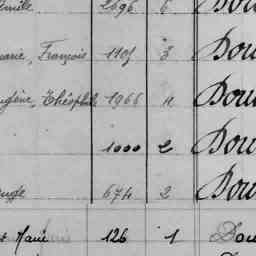 Emile 2696 6 Dou
Marie, François 1105 3 Dou
Eugène, Théophile 1966 11 Dou
1000 2 Dou
674 2 Dou
Marie 126 1 Dou